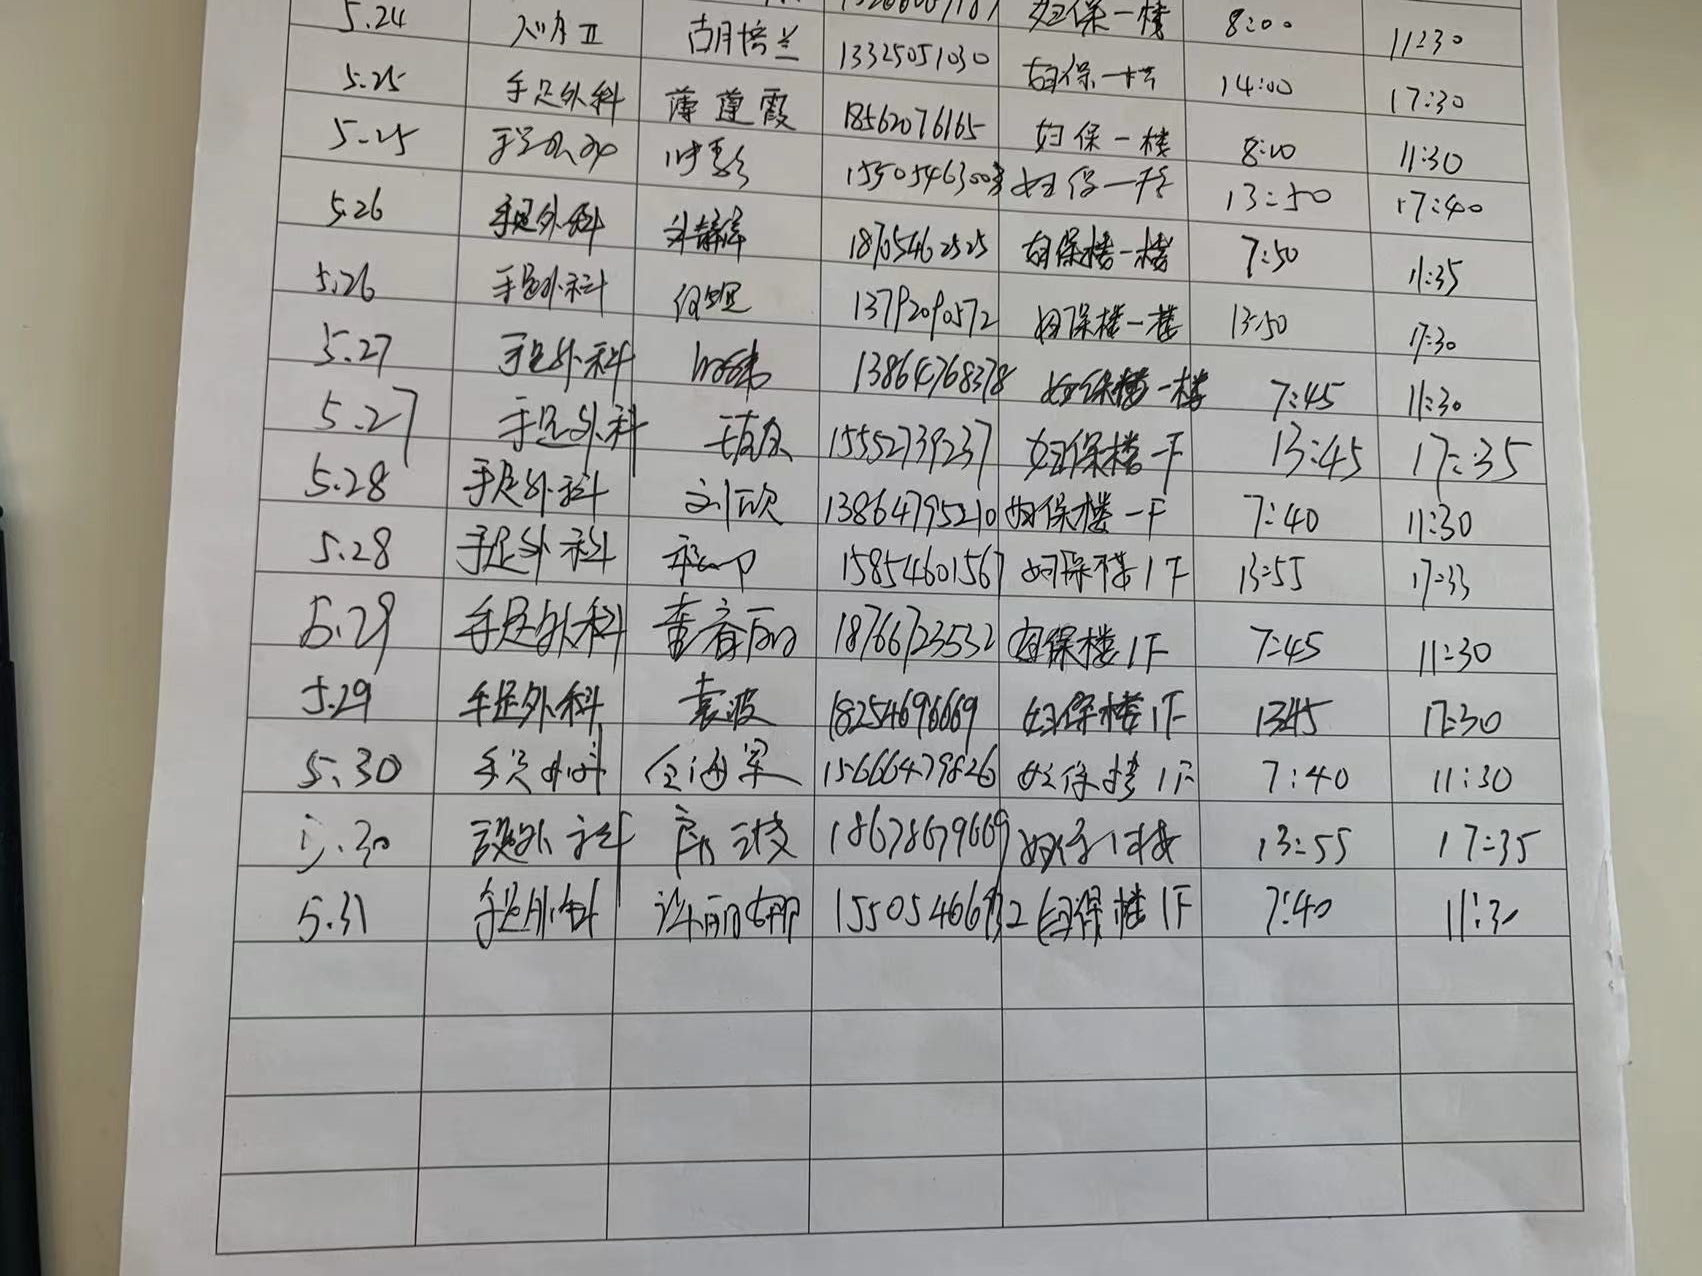 5.24 胡培兰 13325051030 妇保一楼 8:00 11:30
5.25 手足外科 薄莲霞 18562076165 妇保一楼 14:00 17:30
5.25 手足外科 15505463003 妇保一楼 8:00 11:30
5.26 手足外科 18705462525 妇保楼一楼 13:50 17:40
5.26 手足外科 13792090572 妇保楼一楼 7:50 11:35
5.27 手足外科 13864768378 妇保楼一楼 13:50 17:30
5.27 手足外科 15552739237 妇保楼一F 7:45 11:30
5.28 手足外科 刘欣 13864795210 妇保楼一F 13:45 17:35
5.28 手足外科 15854601567 妇保楼1F 7:40 11:30
5.29 手足外科 18766723532 妇保楼1F 13:55 17:33
5.29 手足外科 袁波 18254696669 妇保楼1F 7:45 11:30
5.30 手足外科 15666479826 妇保楼1F 1345 17:30
5.30 手足外科 18678679669 妇保1楼 7:40 11:30
5.31 手足外科 许丽娜 妇保楼1F 13:55 17:35
7:40 11:30